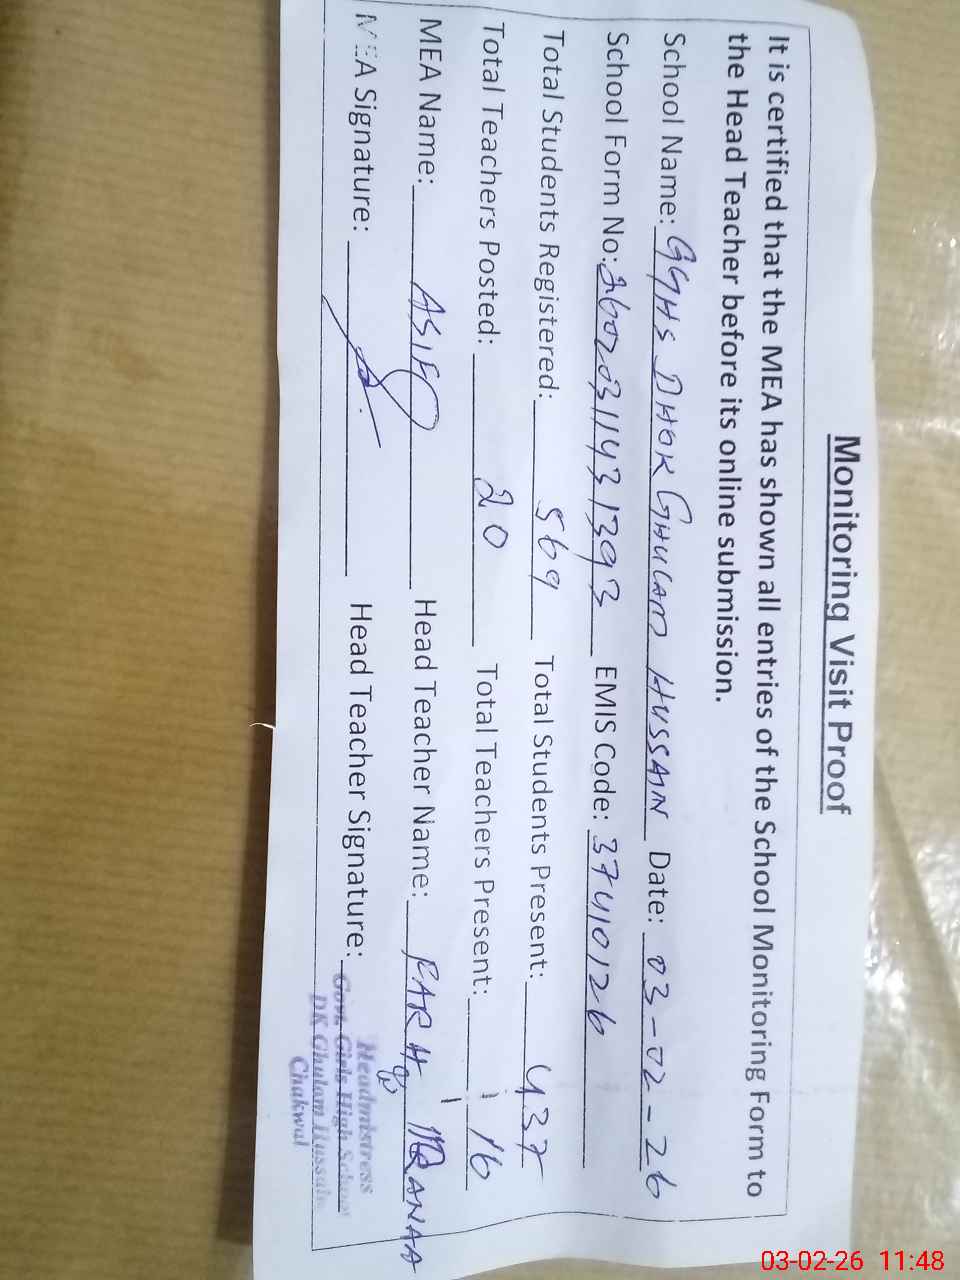 Monitoring Visit Proof
It is certified that the MEA has shown all entries of the School Monitoring Form to
the Head Teacher before its online submission.
School Name: GGHS DHOK GHULAM HUSSAIN Date: 03-02-26
School Form No: 2602031143 1393 EMIS Code: 37410126
Total Students Registered: 569 Total Students Present: 437
Total Teachers Posted: 20 Total Teachers Present: 16
MEA Name: ASIF Head Teacher Name: FARH
MEA Signature: Head Teacher Signature:
Headmistress
Govt. Girls High School
DK Ghulam Hussain
Chakwal
03-02-26 11:48